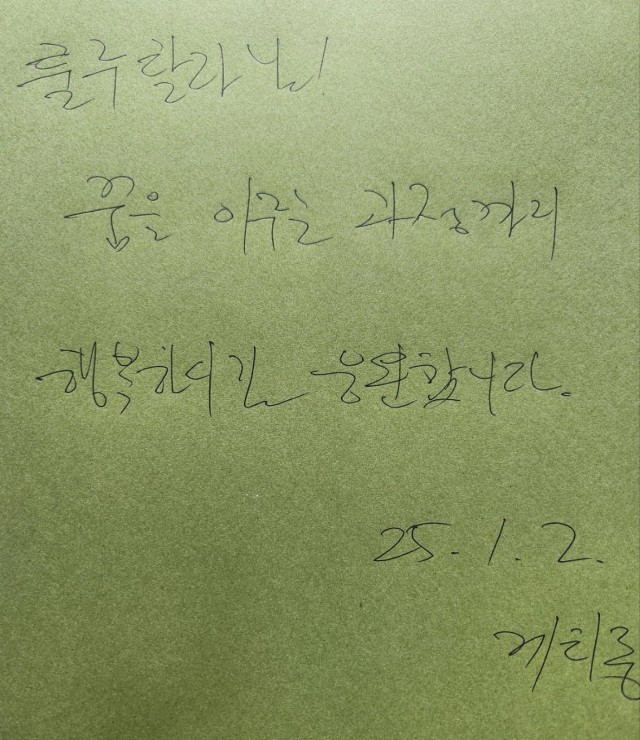 룰루랄라님!
꿈을 이루는 과정까지
행복하시길 응원합니다.
25. 1. 2.